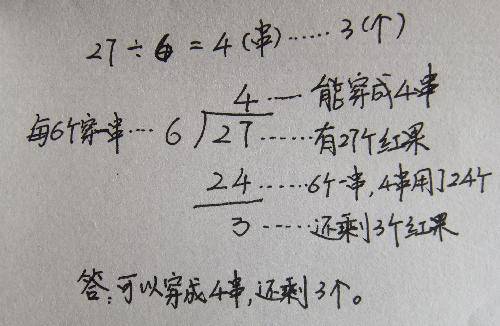 27÷6=4(串)……3(个)
4 — 能穿成4串
每6个穿一串…6)27……有27个红果
24……6个一串,4串用了24个
3……还剩3个红果
答:可以穿成4串,还剩3个。